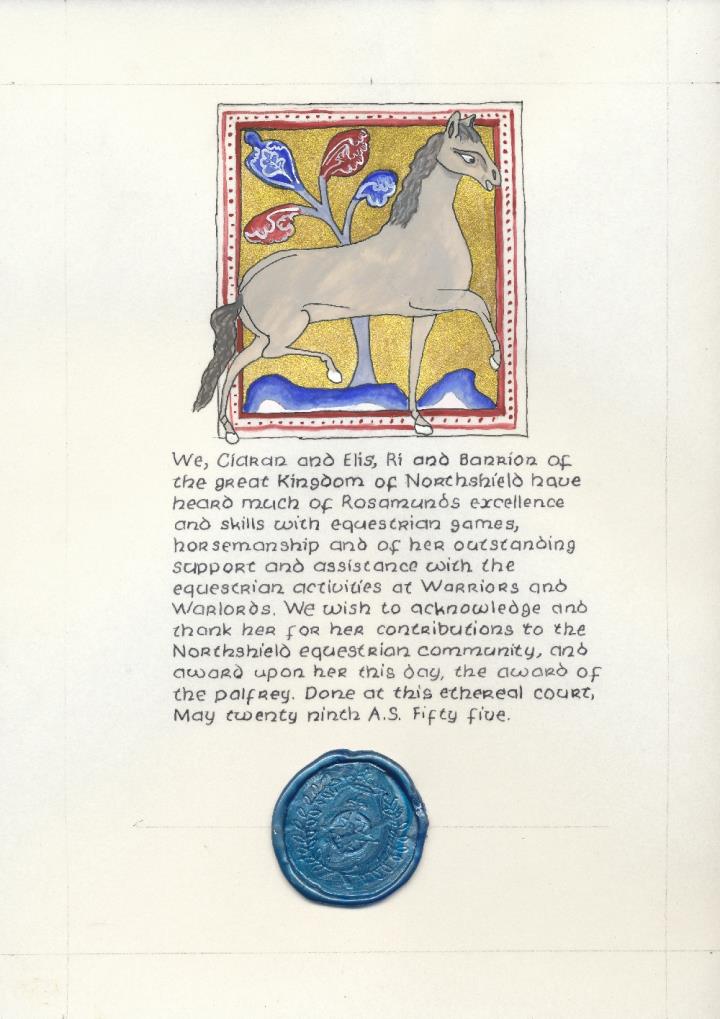 We, Ciaran and Elis, Ri and Banrion of
the great Kingdom of Northshield have
heard much of Rosamunds excellence
and skills with equestrian games,
horsemanship and of her outstanding
support and assistance with the
equestrian activities at Warriors and
Warlords. We wish to acknowledge and
thank her for her contributions to the
Northshield equestrian community, and
award upon her this day, the award of
the palfrey. Done at this ethereal court,
May twenty ninth A.S. Fifty five.